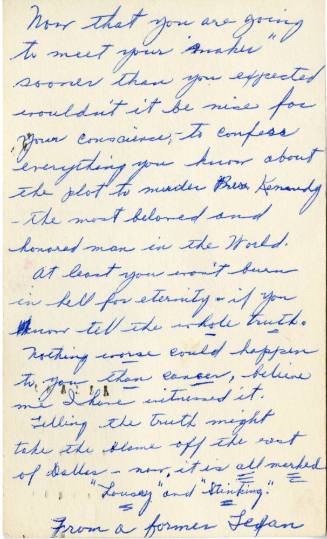 Now that you are going
to meet your "maker"
sooner than you expected
wouldn't it be nice for
your conscience, - to confess
everything you know about
the plot to murder Pres. Kennedy
- the most beloved and
honored man in the World.
At least you won't burn
in hell for eternity - if you
know till the whole truth.
Nothing worse could happen
to you than cancer, believe
me I have witnessed it.
Telling the truth might
take the blame off the rest
of Dallas - now, it is all marked
"Lousey" and "Stinking".
From a former Texan